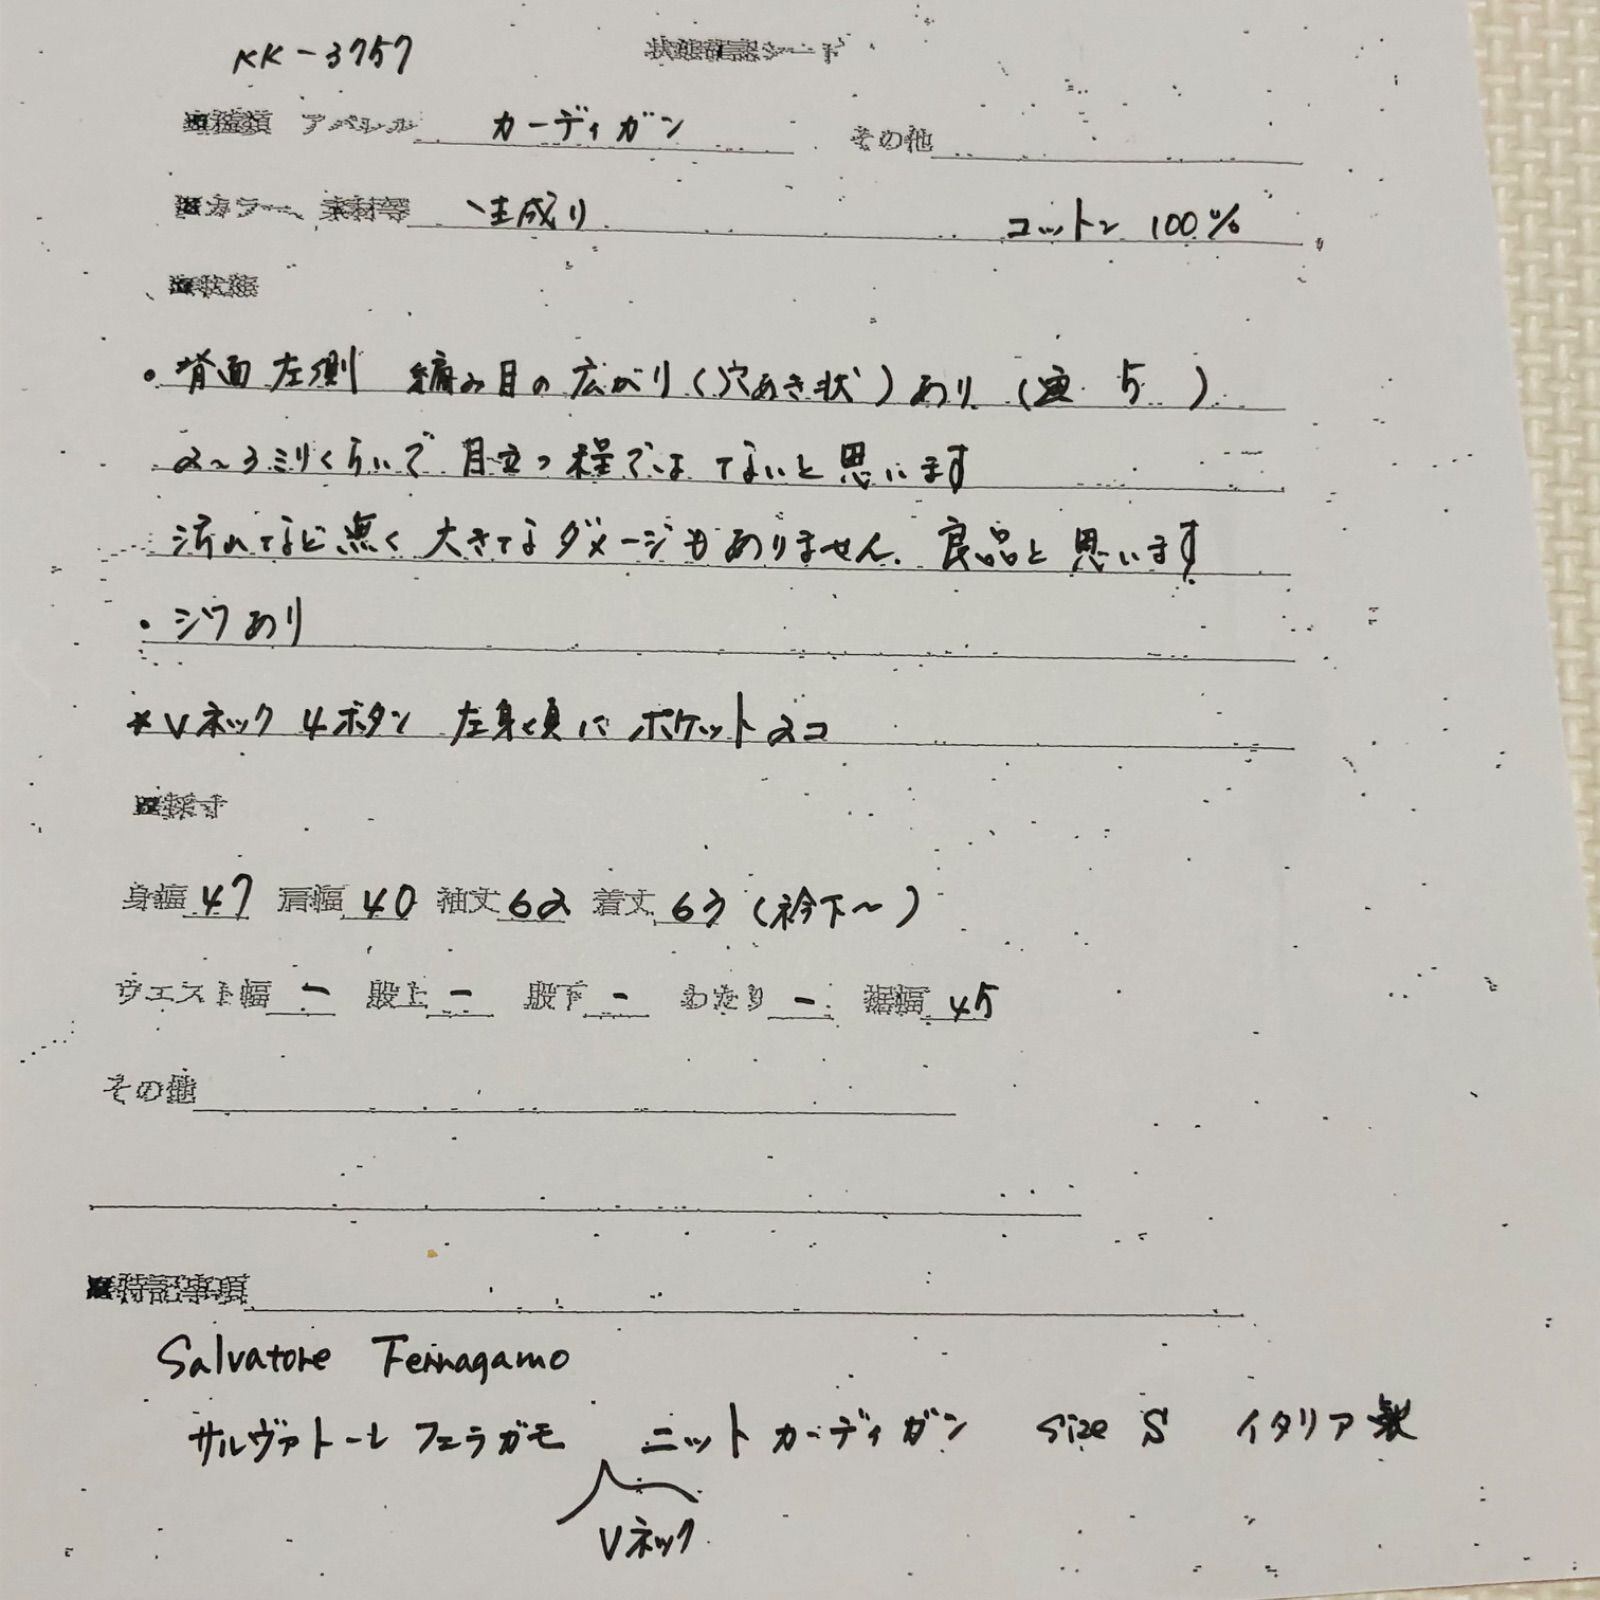 KK-3757 状態確認シート
■種類 アパレル カーディガン その他
■カラー、素材等 生成り コットン 100%
■状態
・背面左側 編み目の広がり(穴あき状)あり (画 5 )
2~3ミリくらいで目立つ程ではてないと思います
汚れなど無く大きなダメージもありません。良品と思います
・シワあり
*Vネック 4ボタン 左身頃にポケット2コ
■採寸
身幅 47 肩幅 40 袖丈 62 着丈 63 (衿下~)
ウエスト幅 - 股上 - 股下 - わたり - 裾幅 45
その他
■特記事項
Salvatore Ferragamo
サルヴァトーレフェラガモ ニットカーディガン size S イタリア製
Vネック